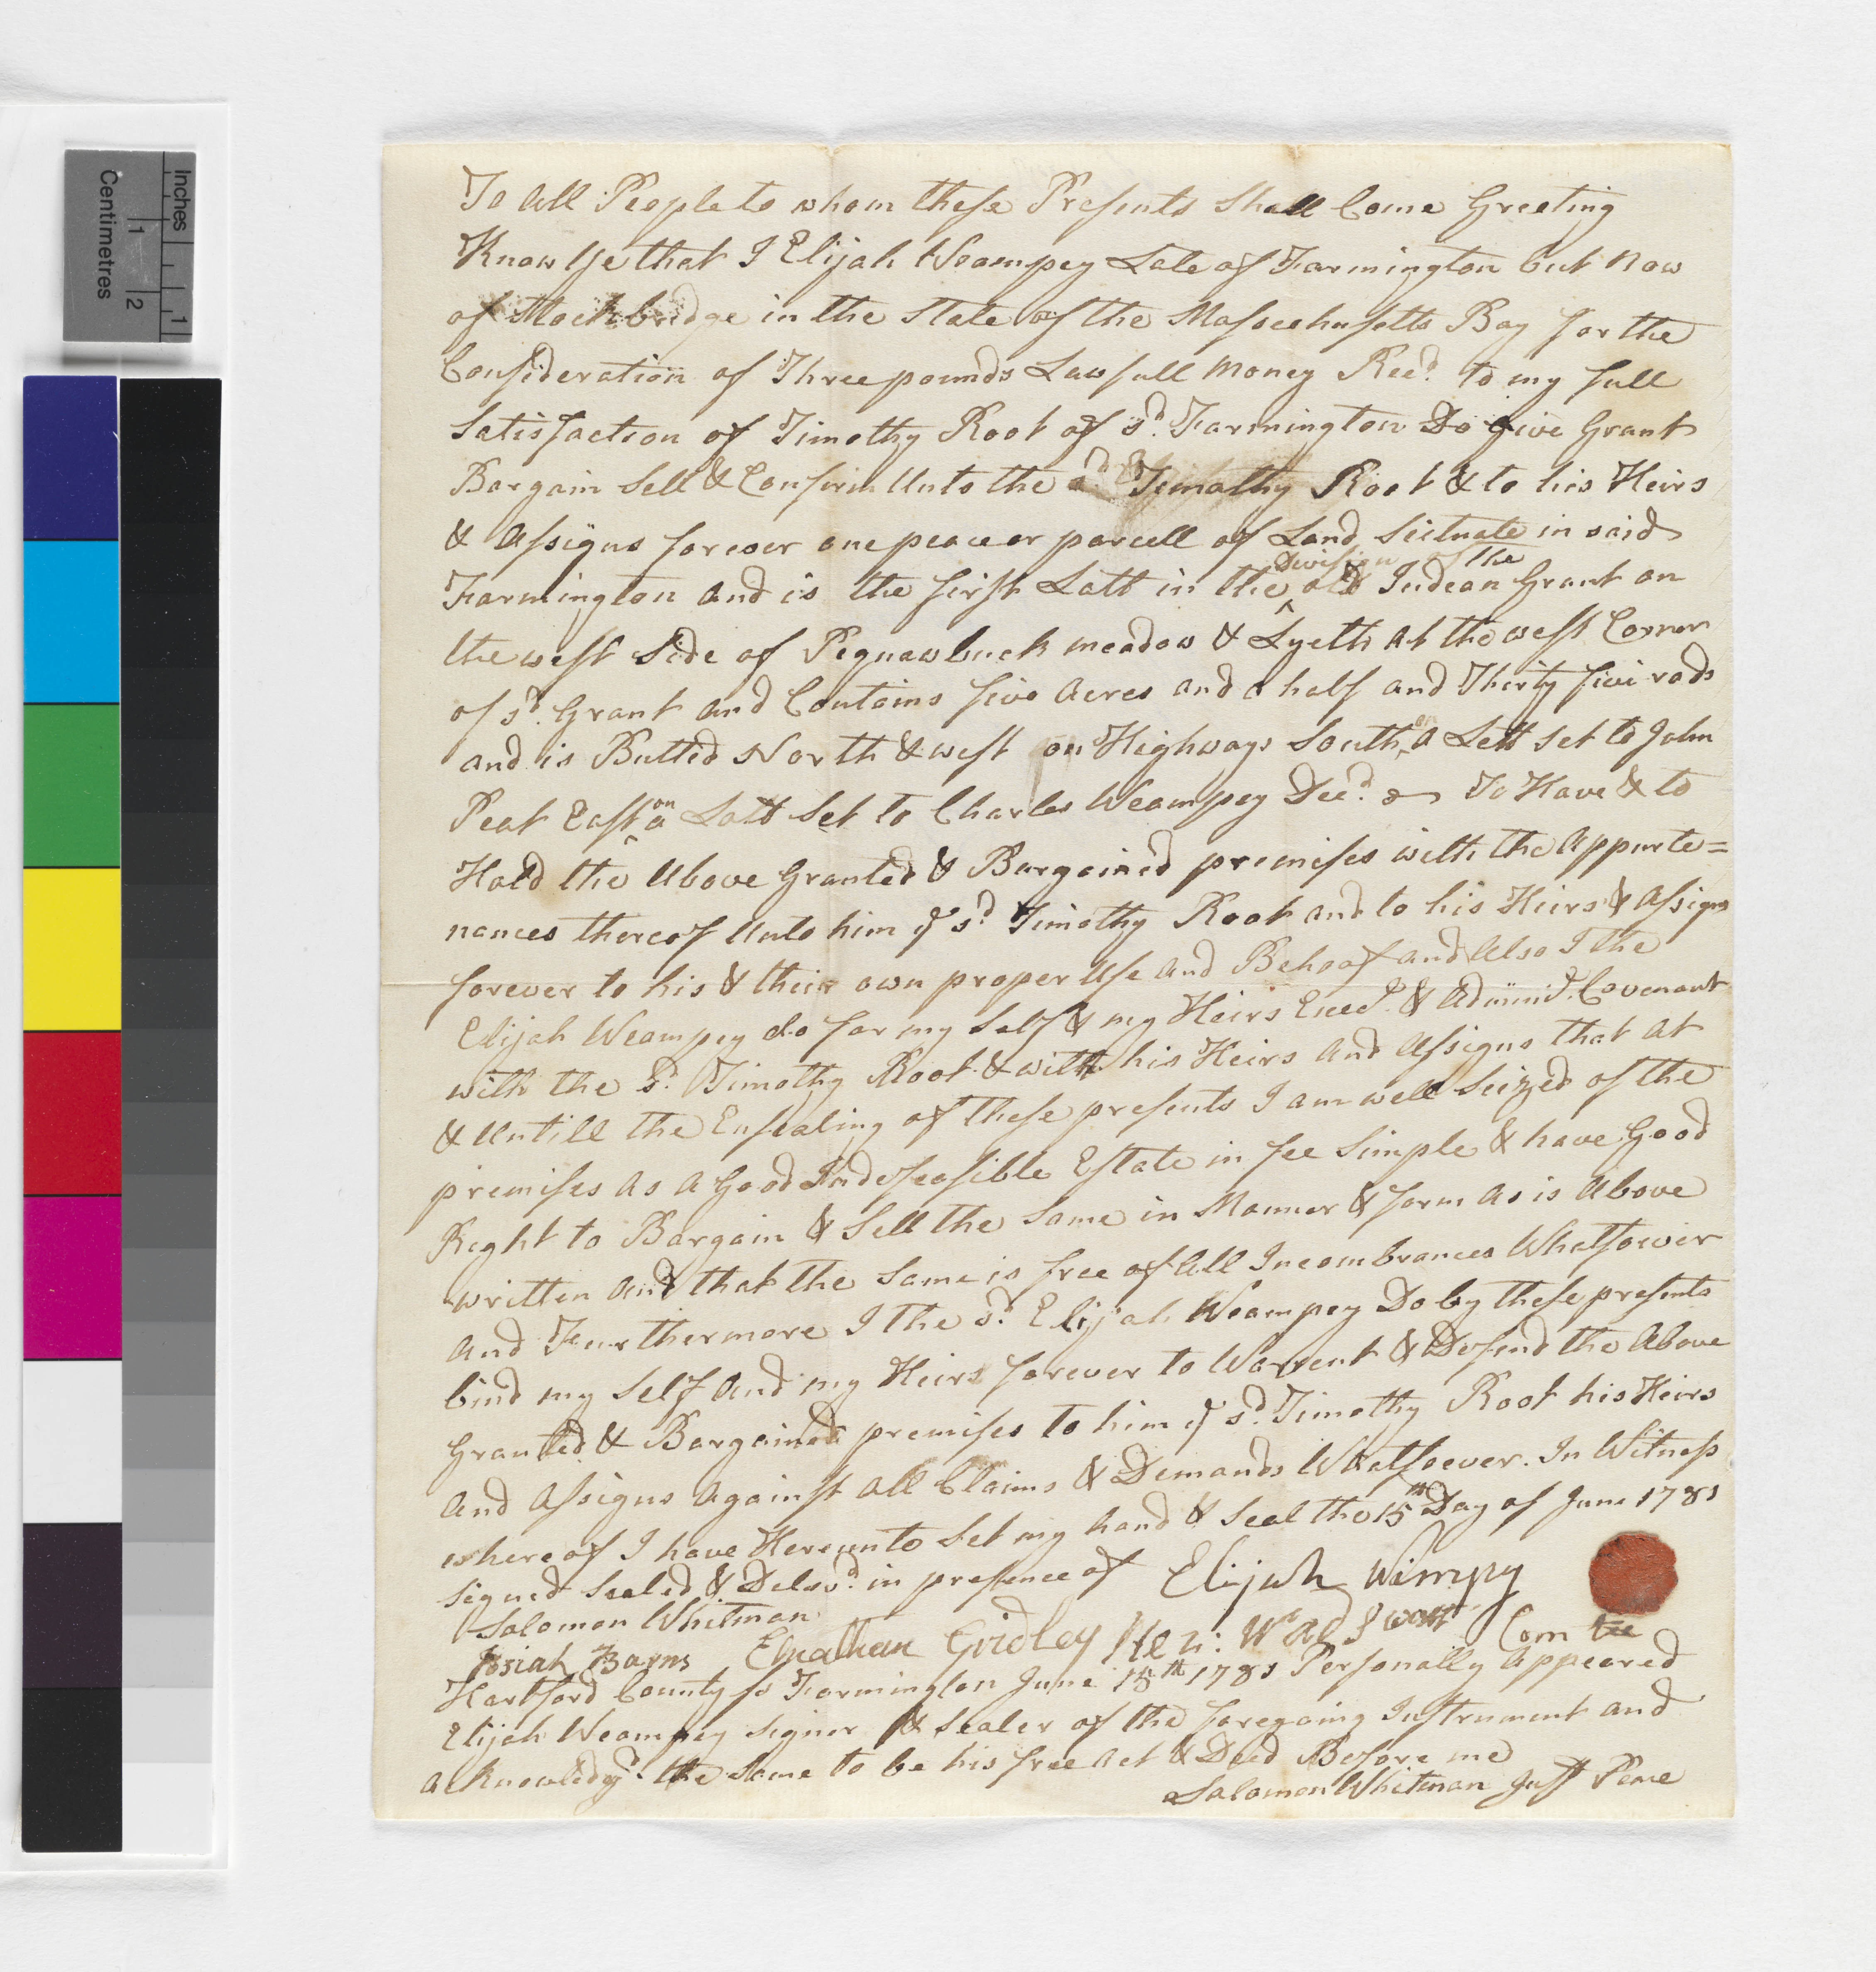 Inches
1
Centimetres
1 2
To All People to whom these Presents Shall Come Greeting
Know Ye that I Elijah Weampey Late of Farmington but Now
of Stockbridge in the State of the Massechusetts Bay for the
Consideration of Three pounds Lawfull money Recd. to my full
Satisfaction of Timothy Root of sd. Farmington Do give Grant
Bargain Sell & Confirm Unto the sd. Timothy Root & to his Heirs
& Assigns forever one peace or parcell of Land Scituate in said
Farmington and is the first Lott in the ^Division of the old Indean Grant on
the west Side of Pequawbuck meadow & Lyeth At the west Corner
of sd. Grant and Contains five Acres and a half and Thirty five rods
and is Butted North & west on Highways South ^on a Lott set to John
Peat East ^on a Lott Set to Charles Weampey Decd. To Have & to
Hold the Above Granted & Bargained premises with the Appurte=
nances thereof Unto him ye sd. Timothy Root and to his Heirs & Assigns
forever to his & their own proper Use and Behoof and Also I the
Elijah Weampey do for my Self & my Heirs Execd. & Administ. Covenant
with the sd. Timothy Root & with his Heirs and Assigns that At
& Untill the Ensealing of these presents I am well Seized of the
premises As a Good Indefeasible Estate in fee Simple & have Good
Right to Bargain & Sell the Same in Manner & form As is Above
written and that the Same is free of All Incombrances Whatsoever
And Furthermore I the sd. Elijah Weampey Do by these presents
bind my Self And my Heirs forever to Warrent & Defend the Above
Granted & Bargained premises to him ye sd. Timothy Root his Heirs
And Assigns Against All Claims & Demands Whatsoever. In Witness
whereof I have Hereunto Set my hand & Seal the 15th Day of June 1781
Signed Sealed & Delivd. in presence of Elijah Wimpy
Solomon Whitman
Josiah Barns Elnathan Gridley Hez: Wadsworth Comtee
Hartford County ss Farmington June 15th 1781 Personally Appeared
Elijah Weampey Signer & Sealer of the foregoing Instrument and
Acknowledgd. the Same to be his free Act & Deed Before me
Solomon Whitman Just Peace